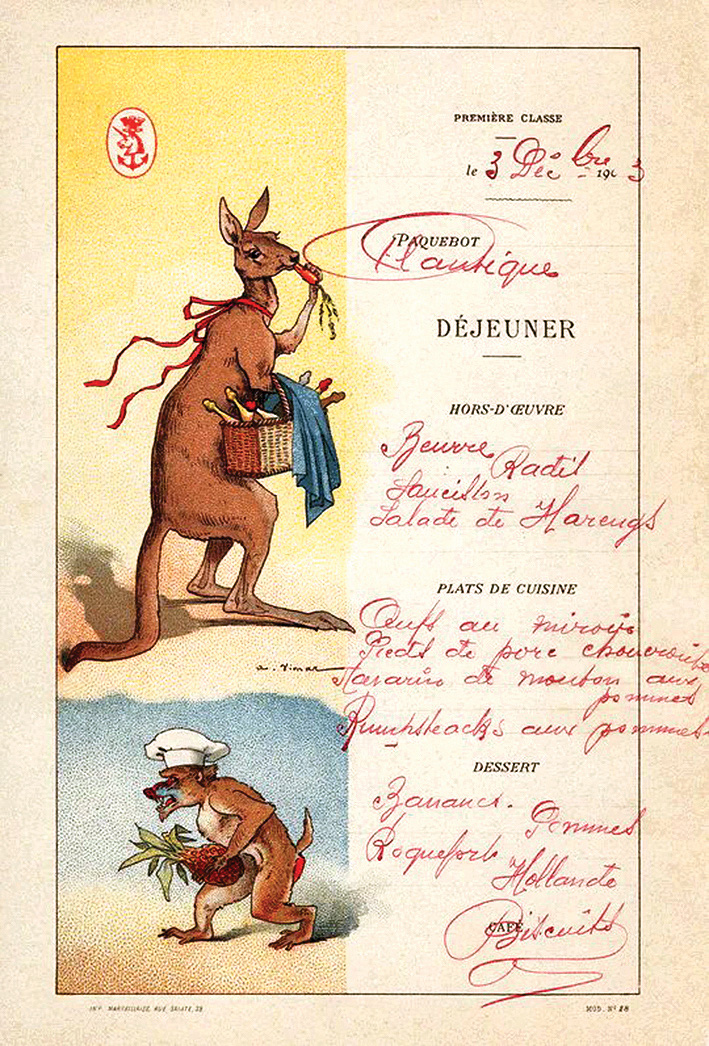 PREMIÈRE CLASSE
le 3 Déc bre 1903
PAQUEBOT
DÉJEUNER
HORS-D'ŒUVRE
Beurre Radis
Saucisson
Salade de Harengs
PLATS DE CUISINE
Œufs au miroir
Pieds de porc choucroute
Navarin de mouton aux
pommes
Rumpsteacks aux pommes
a. Vimar
DESSERT
Bananes. Pommes
Roquefort
Hollande
CAFÉ
Biscuits
IMP. MARSEILLAISE, RUE SAINTE, 39
MOD. Nº 18